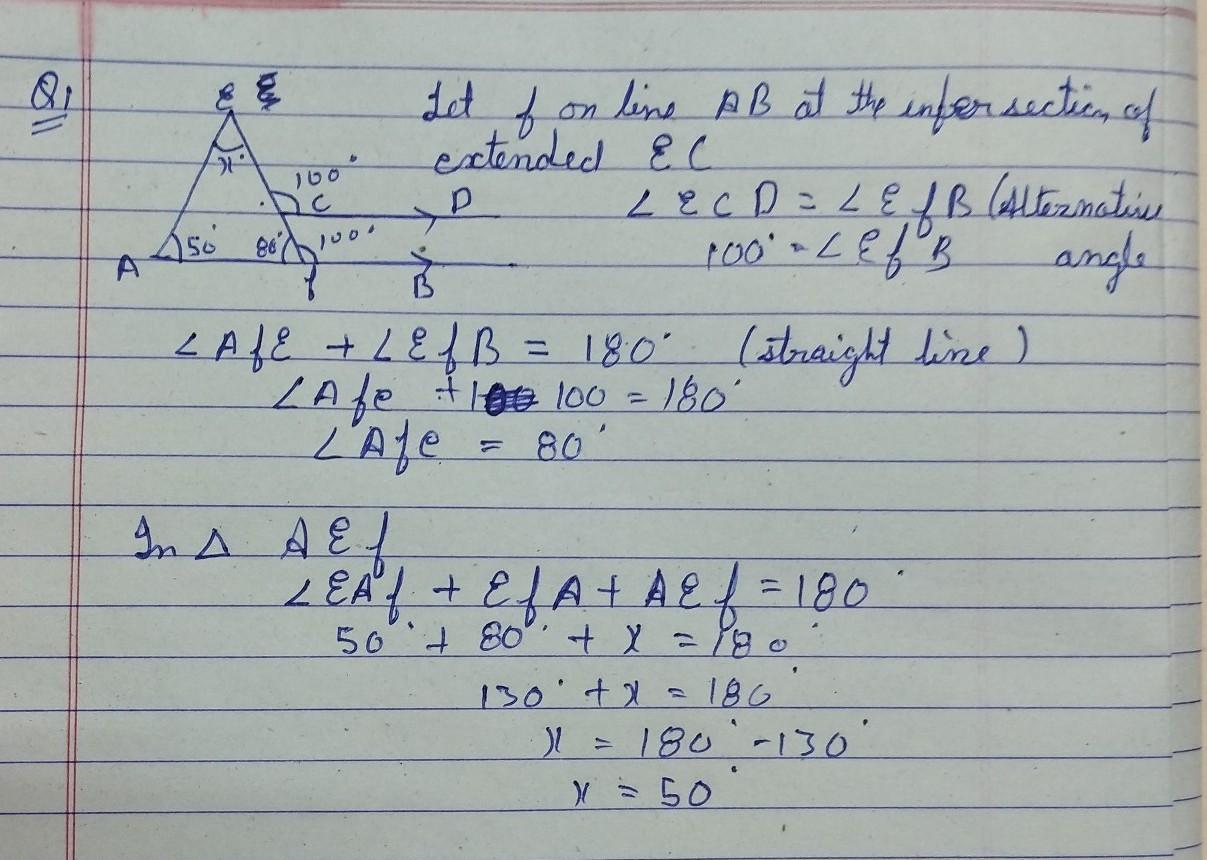 Q1
E
x°
100°
C
D
A
50°
80°
100°
f
B
Let f on line AB at the intersection of
extended EC
∠ECD = ∠EfB (Alternative
100° = ∠EfB angle
∠AfE + ∠EfB = 180° (straight line)
∠Afe + 100 = 180°
∠Afe = 80°
In Δ AEf
∠EAf + EfA + AEf = 180°
50° + 80° + x = 180°
130° + x = 180°
x = 180° - 130°
x = 50°